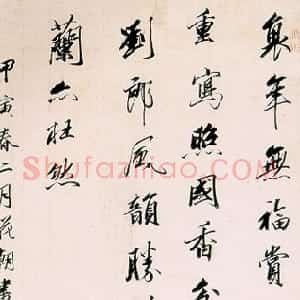 年無福賞
重寫照國香
劉郎風韻勝
蘭亦枉然
甲寅春二月花朝書
Shufaziliao.com